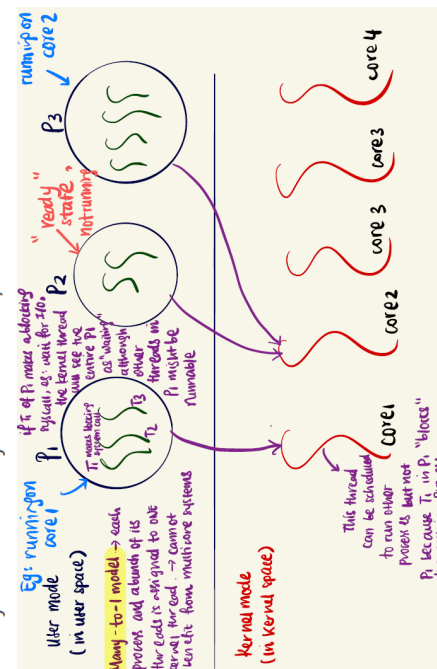 Eg: running on
core1
User mode
(in user space)
Many-to-1 model → each
process and a bunch of its
threads is assigned to one
kernel thread → cannot
benefit from multicore systems
P1
T1 makes blocking
system call
T2
T3
if T1 of P1 makes a blocking
syscall, eg: wait for I/O,
the kernel thread
will see the
entire P1
as "waiting"
although
other
threads in
P1 might be
runnable
P2
"ready"
state,
not running
P3
running on
core2
Kernel mode
(in kernel space)
core1
This thread
can be scheduled
to run other
processes but not
P1 because T1 in P1 "blocks"
core2
core3
core3
core4